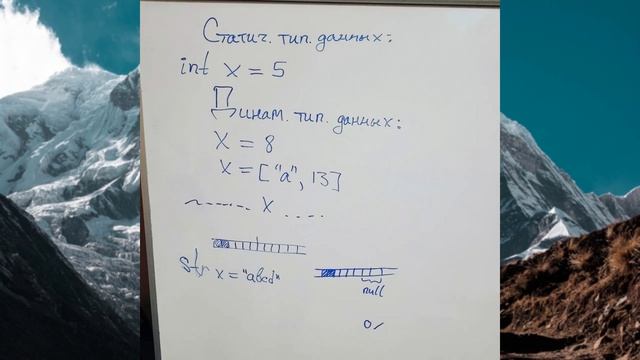 Статич. тип. данных:
int x = 5
Динам. тип. данных:
x = 8
x = ["a", 13]
x
str x = "abcd"
null